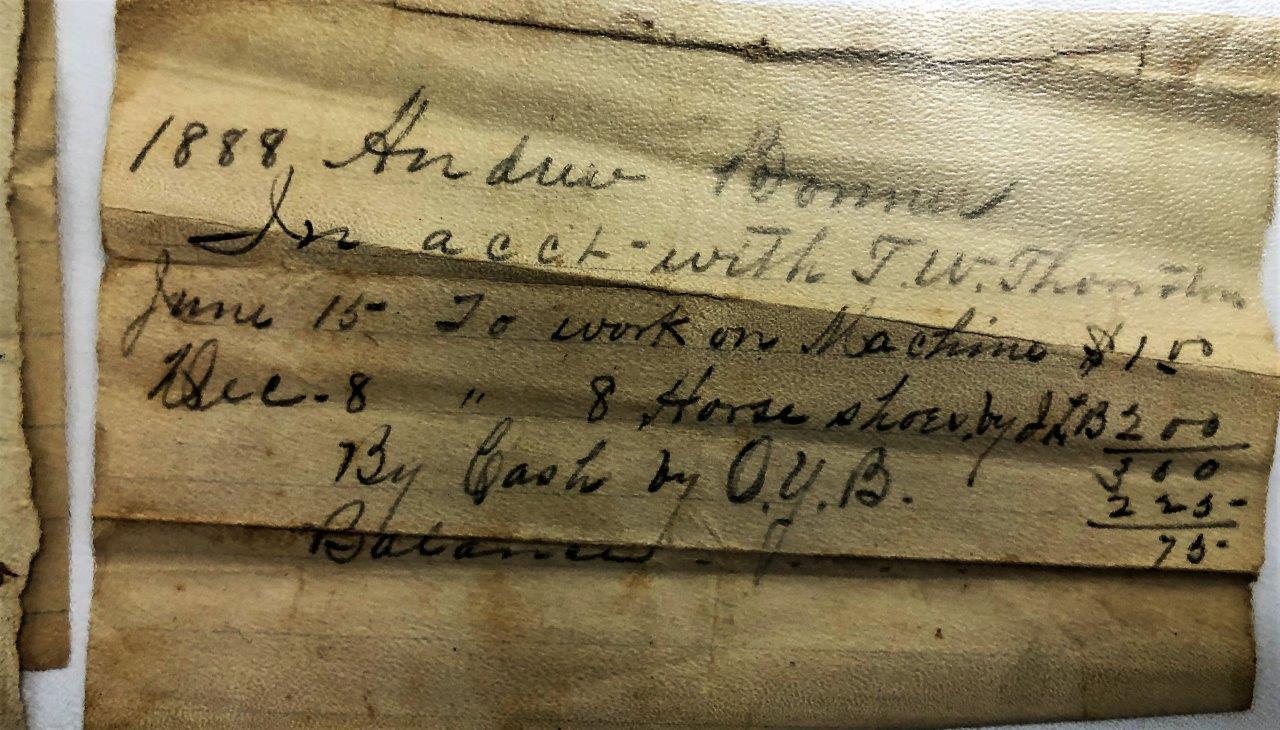 1888 Andrew Bonner
In acct - with T. W. Thornton
June 15 To work on Machine $1 00
Dec. 8 " 8 Horse shoes, by 2 00
3 00
By Cash by O.Y.B. 2 25-
Balance 75-